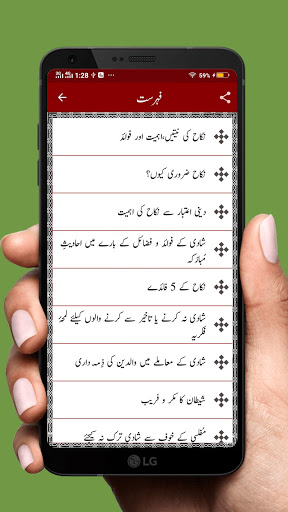 1:28
59%
فہرست
نکاح کی نیتیں،اہمیت اور فوائد
نکاح ضروری کیوں؟
دینی اعتبار سے نکاح کی اہمیت
شادی کے فوائد و فضائل کے بارے میں احادیثِ
مُبارَکہ
نکاح کے 5 فائدے
شادی نہ کرنے یا تاخیر سے کرنے والوں کیلئے لمحۂ
فکریہ
شادی کے معاملے میں والدین کی ذِمہ داری
شیطان کا مکر و فریب
مُفلسی کے خوف سے شادی ترک نہ کیجئے
LG